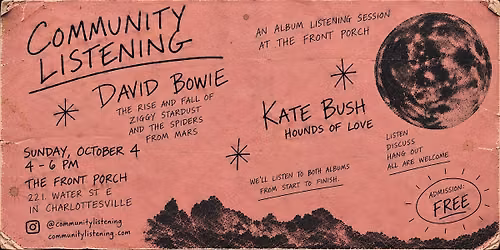 COMMUNITY
LISTENING
AN ALBUM LISTENING SESSION
AT THE FRONT PORCH
DAVID BOWIE
THE RISE AND FALL OF
ZIGGY STARDUST
AND THE SPIDERS
FROM MARS
KATE BUSH
HOUNDS OF LOVE
SUNDAY, OCTOBER 4
4 - 6 PM
THE FRONT PORCH
221 WATER ST E
IN CHARLOTTESVILLE
@communitylistening
communitylistening.com
WE'LL LISTEN TO BOTH ALBUMS
FROM START TO FINISH.
LISTEN
DISCUSS
HANG OUT
ALL ARE WELCOME
ADMISSION:
FREE